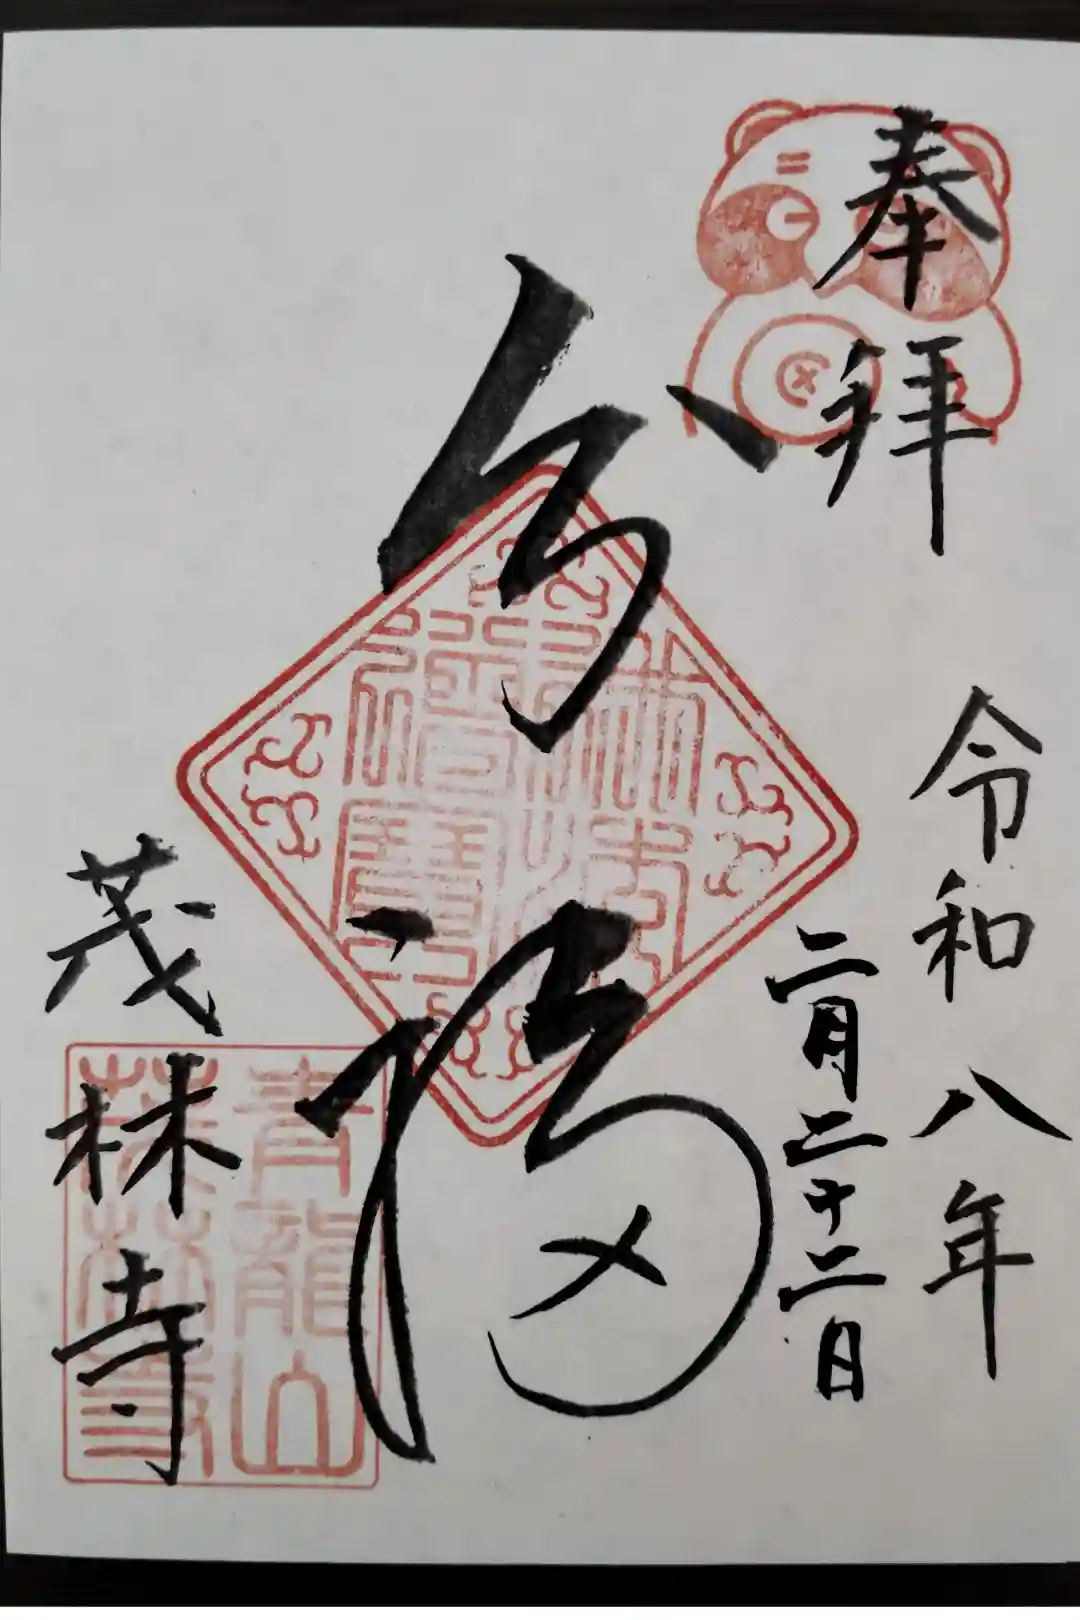 奉拝
令和八年
二月二十二日
分福
茂林寺
青龍山
茂林寺